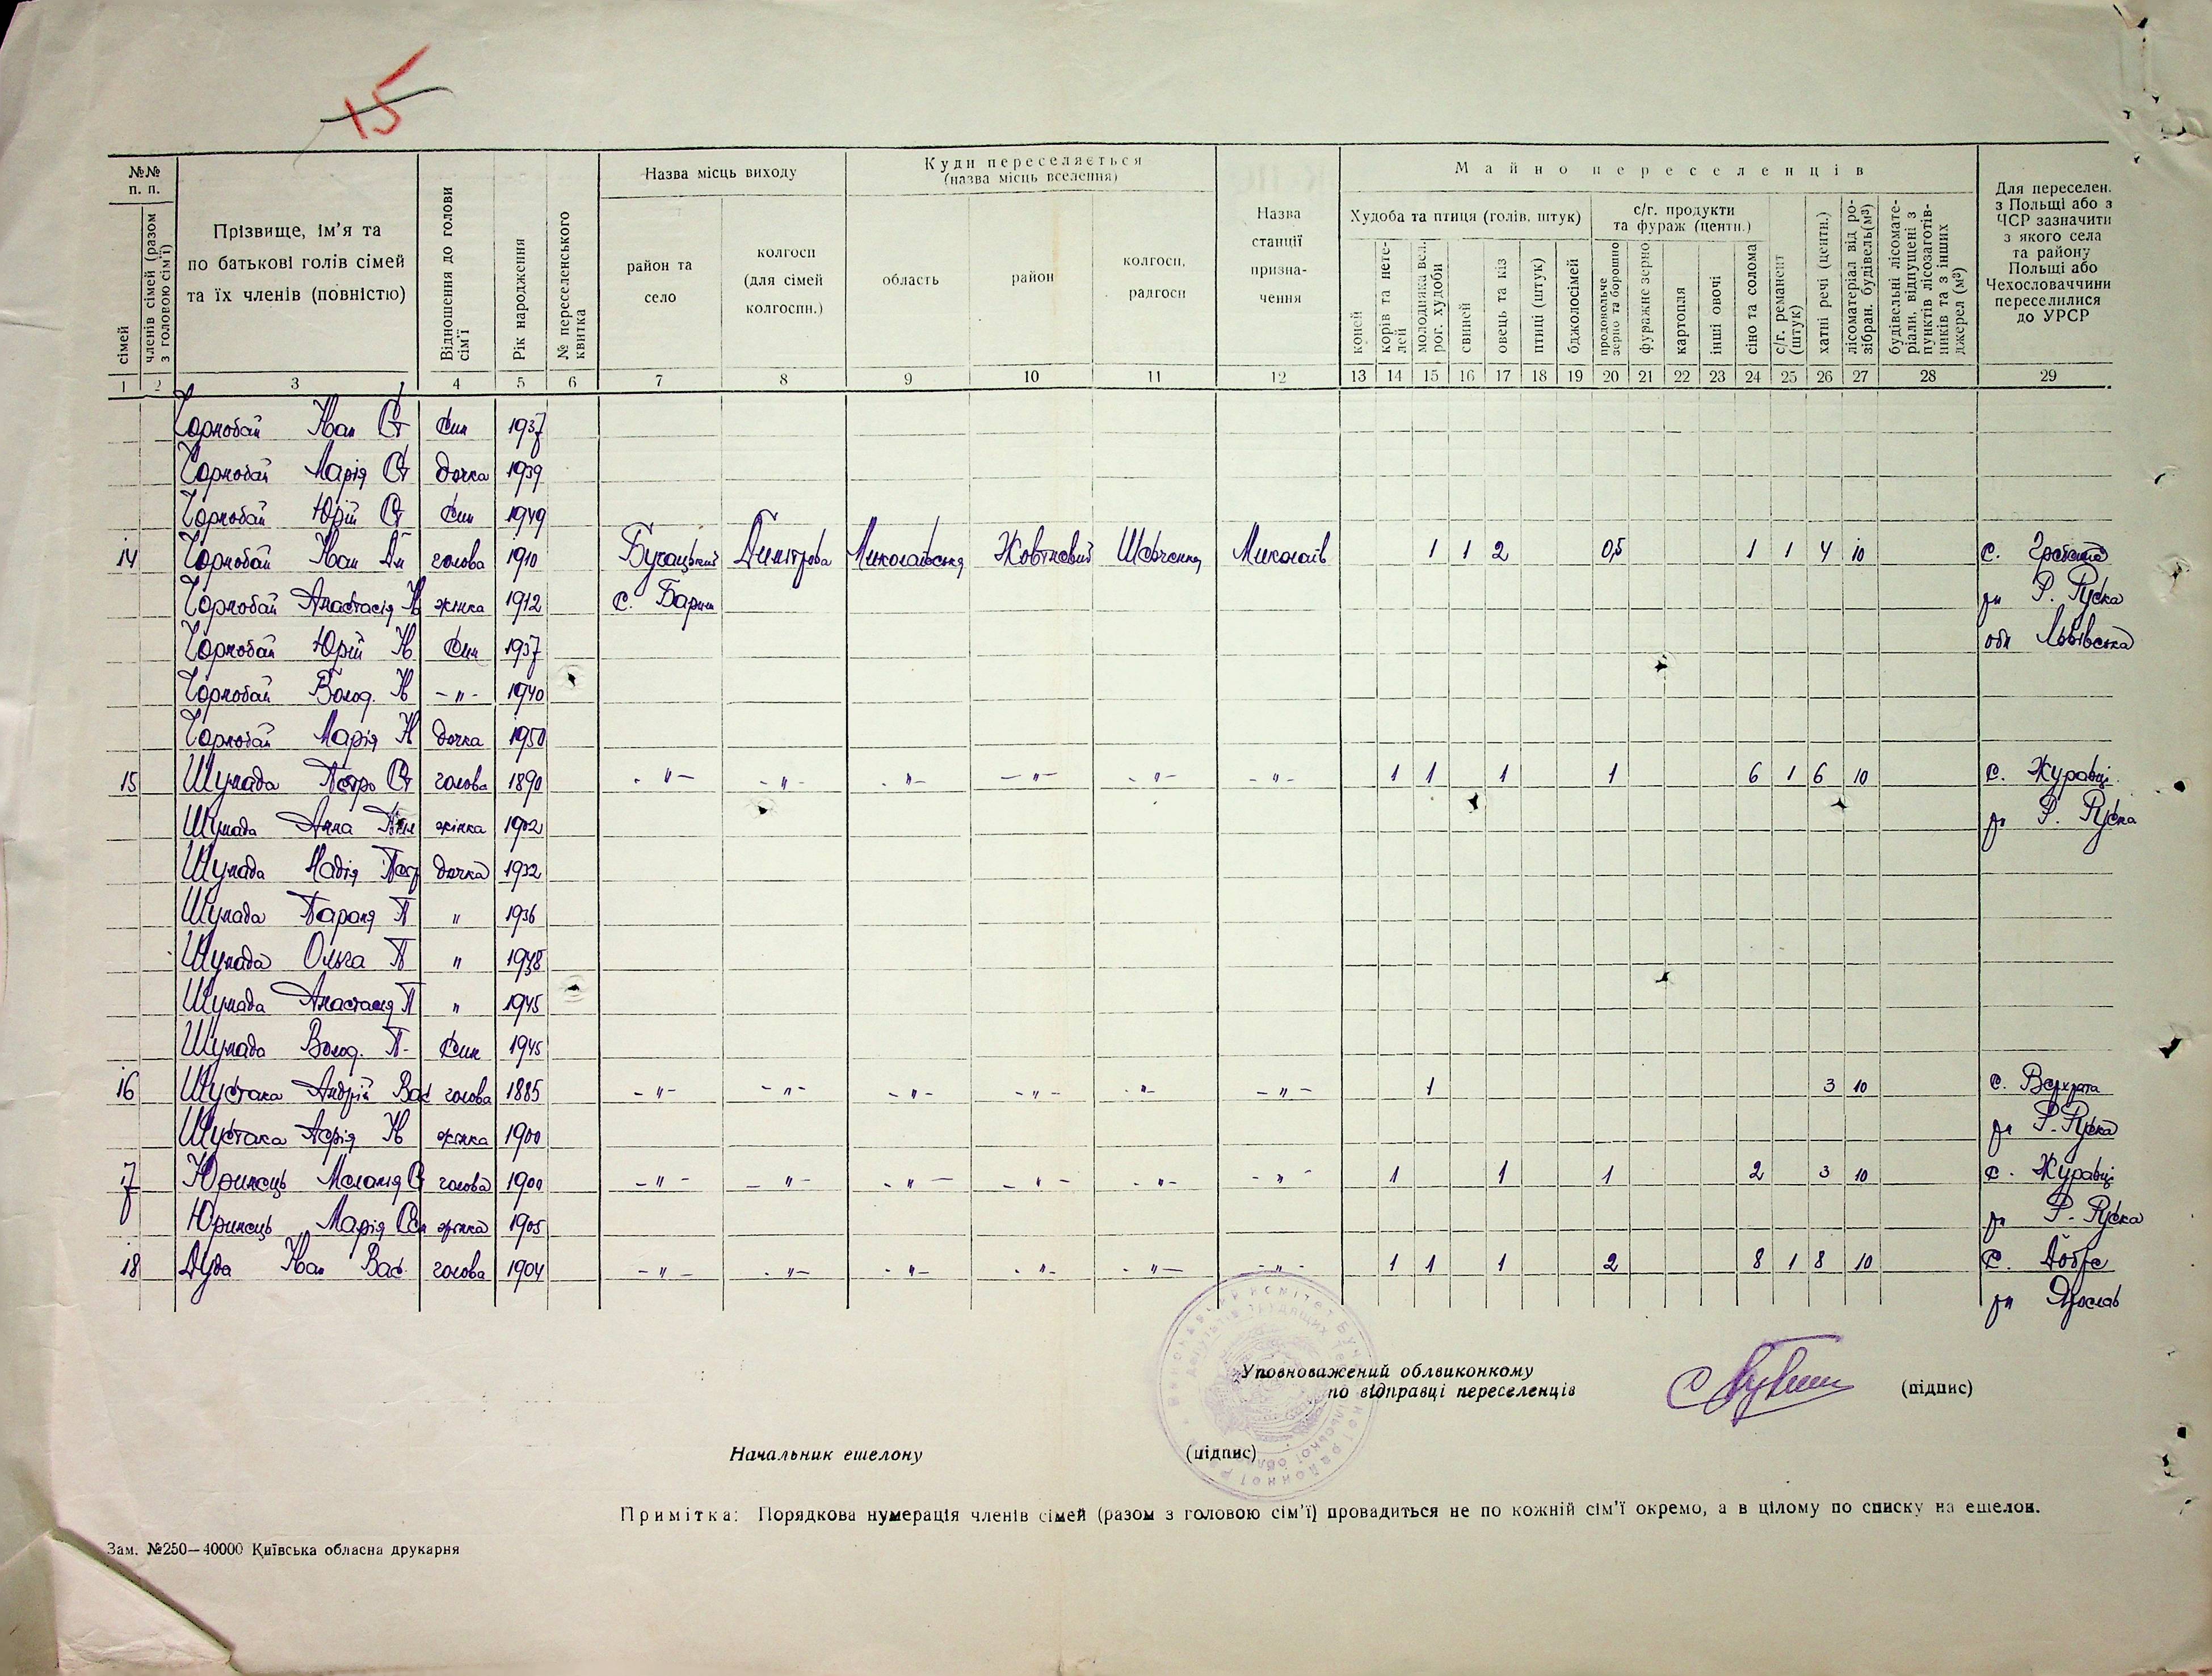 15
№№ п. п.
сімей
членів сімей (разом з головою сім'ї)
Прізвище, ім'я та по батькові голів сімей та їх членів (повністю)
Відношення до голови сім'ї
Рік народження
№ переселенського квитка
Назва місць виходу
район та село
колгосп (для сімей колгоспн.)
Куди переселяється (назва місць вселення)
область
район
колгосп, радгосп
Назва станції призна-чення
Майно переселенців
Худоба та птиця (голів, штук)
коней
корів та нете-лей
молодняка вел. рог. худоби
свиней
овець та кіз
птиці (штук)
бджолосімей
с/г. продукти та фураж (центн.)
продовольче зерно та борошно
фуражне зерно
картопля
інші овочі
сіно та солома
с/г. реманент (штук)
хатні речі (центн.)
лісоматеріал від ро-зібран. будівель (м³)
будівельні лісомате-ріали, відпущені з пунктів лісозаготів-ників та з інших джерел (м³)
Для переселен. з Польщі або з ЧСР зазначити з якого села та району Польщі або Чехословаччини переселилися до УРСР
1 2 3 4 5 6 7 8 9 10 11 12 13 14 15 16 17 18 19 20 21 22 23 24 25 26 27 28 29
Чорнобай Іван Ст син 1937
Чорнобай Марія Ст дочка 1939
Чорнобай Юрій Ст син 1949
14 Чорнобай Іван Дм голова 1910 Бучацький Димітрова Миколаївська Жовтневий Шевченка Миколаїв 1 1 2 0,5 1 1 4 10 с.
Чорнобай Анастасія І жінка 1912 с. Бариш рн Р. Руска
Чорнобай Юрій І син 1937 обл Львівська
Чорнобай Волод. І -"- 1940
Чорнобай Марія І дочка 1950
15 Шумада Петро Ст голова 1890 -"- -"- -"- -"- -"- -"- 1 1 1 1 6 1 6 10 с. Журавці
Шумада Анна жінка 1902 рн Р. Руска
Шумада Надія Петр дочка 1932
Шумада Параня П " 1936
Шумада Ольга П " 1938
Шумада Анастасія П " 1945
Шумада Волод. П. син 1945
16 Шустака Андрій Вас голова 1885 -"- -"- -"- -"- -"- -"- 1 3 10 с. Верхрата
Шустака І жінка 1900 рн Р. Руска
17 Юринець Меланія С голова 1900 -"- -"- -"- -"- -"- -"- 1 1 1 2 3 10 с. Журавці
Юринець Марія Сем жінка 1905 рн Р. Руска
18 Дуда Іван Вас. голова 1904 -"- -"- -"- -"- -"- -"- 1 1 1 2 8 1 8 10 с. Добре
рн Ярослав
Уповноважений облвиконкому
по відправці переселенців (підпис)
Начальник ешелону (підпис)
Примітка: Порядкова нумерація членів сімей (разом з головою сім'ї) провадиться не по кожній сім'ї окремо, а в цілому по списку на ешелон.
Зам. №250—40000 Київська обласна друкарня